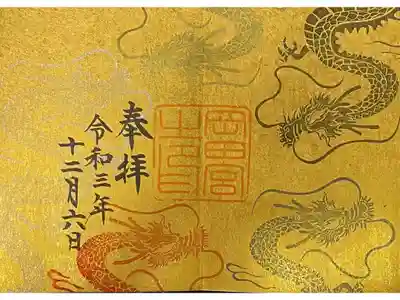 奉拝
令和三年
十二月六日